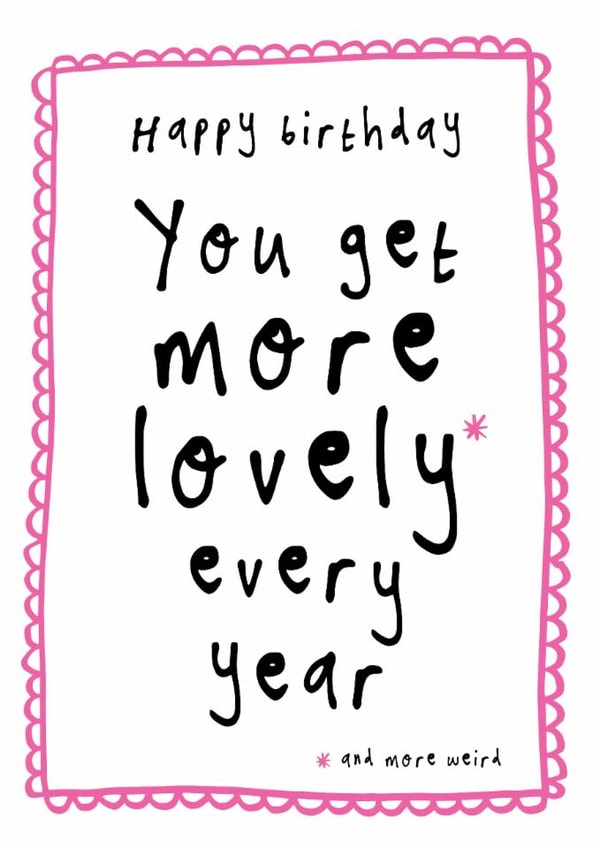 Happy birthday
You get
more
lovely*
every
year
* and more weird